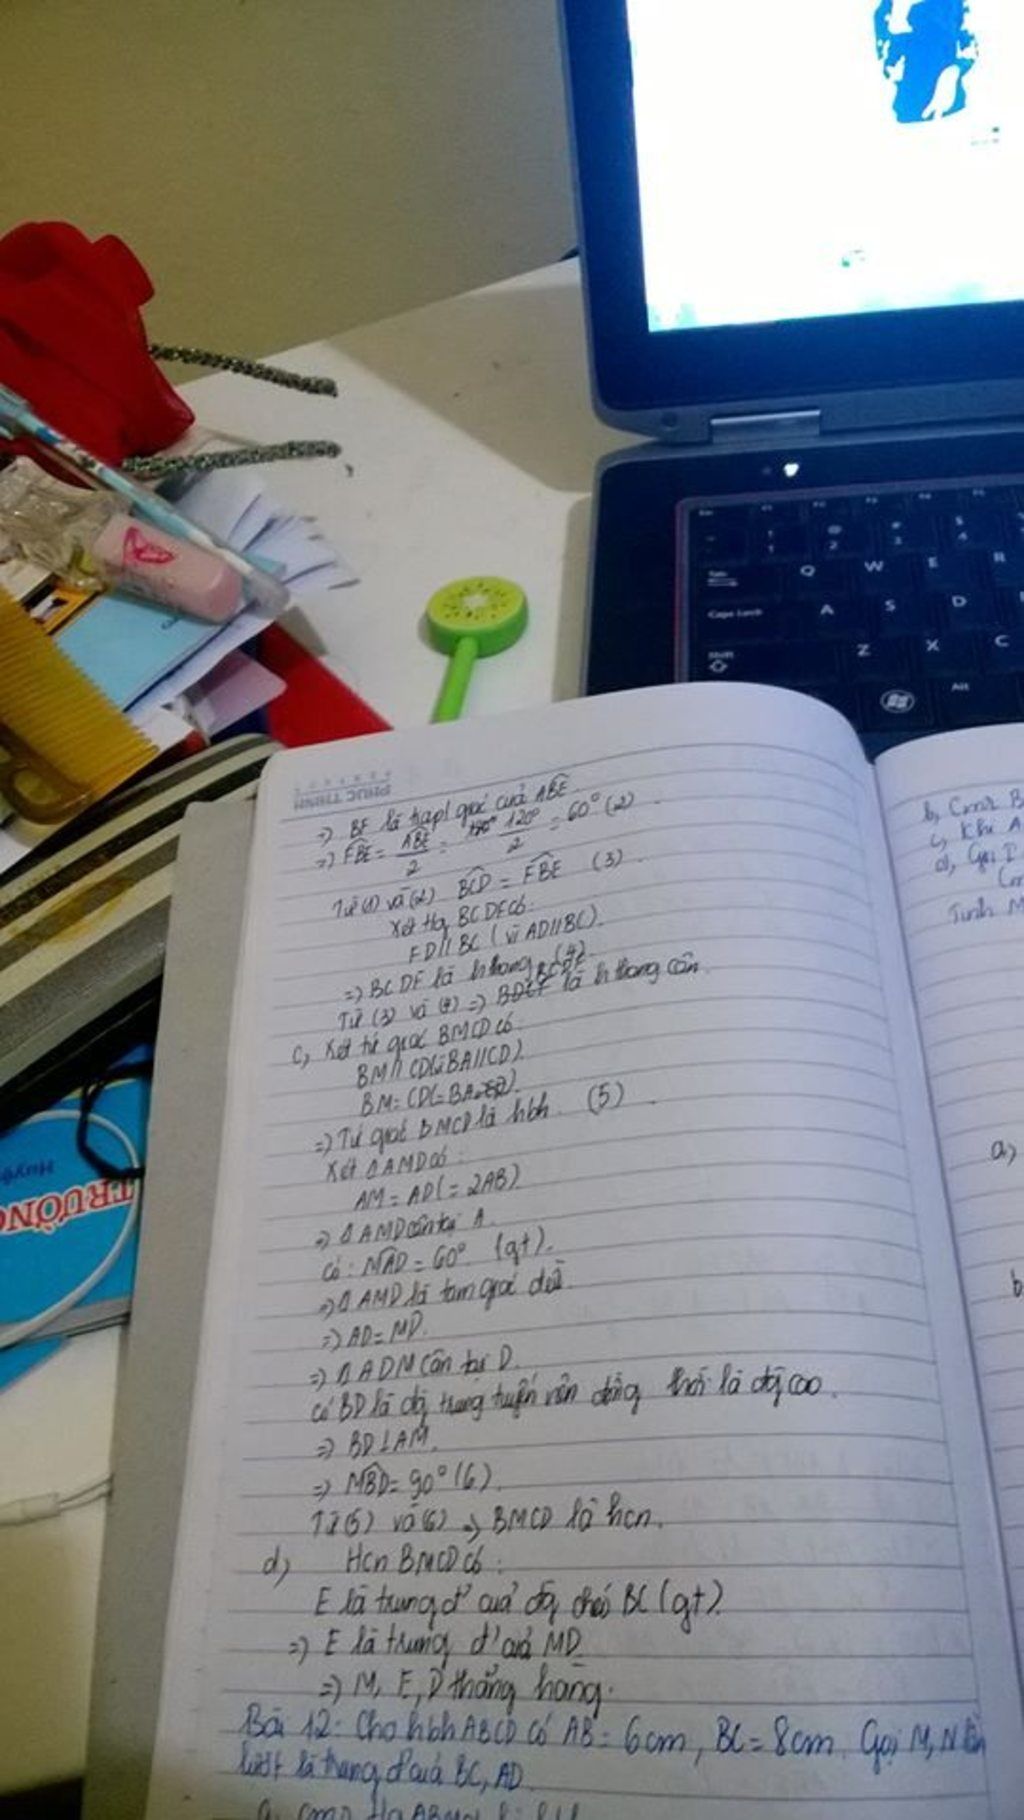 PHUC THINH
=> BF là tia p/ giác của ABE
=> FBE = ABE/2 = 120°/2 = 60° (2)
Từ (1) và (2) BCD = FBE (3)
Xét Htg BCDF có:
FD // BC (vì AD//BC).
=> BCDF là hthang (4).
Từ (3) và (4) => BCDF là hthang cân.
c, Xét tứ giác BMCD có:
BM // CD (vì BA//CD)
BM = CD (= BA).
=> Tứ giác BMCD là hbh. (5)
Xét Δ AMD có:
AM = AD (= 2AB)
=> Δ AMD cân tại A.
có: MAD = 60° (gt).
=> Δ AMD là tam giác đều.
=> AD = MD.
=> Δ ADM cân tại D.
có BD là đg trung tuyến nên đồng thời là đg cao.
=> BD ⊥ AM.
=> MBD = 90° (6).
Từ (5) và (6) => BMCD là hcn.
d, Hcn BMCD có:
E là trung đ' của đg chéo BC (gt).
=> E là trung đ' của MD.
=> M, E, D thẳng hàng.
Bài 12: Cho hbh ABCD có AB = 6cm, BC = 8cm. Gọi M, N lần
lượt là trung đ' của BC, AD.
b, Cmr B
c, Khi A
d, Gọi I
Tính M
a,
b
TRƯỜNG
Huyện
1
@
2
#
3
$
4
Q W E R
Caps Lock A S D
Shift Z X C
Alt